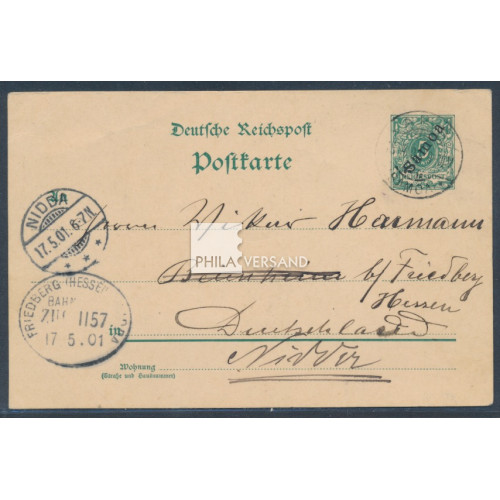 Deutsche Reichspost
Postkarte
Samoa
NIDDA
17.5.01. 6-7N
Herrn Viktor Hamann
PHILA VERSAND
b/ Friedberg
Hessen
FRIEDBERG (HESSEN)
BAHN
ZUG 1157
17 5 01
in
Deutschland
Nidda
Wohnung
(Straße und Hausnummer)